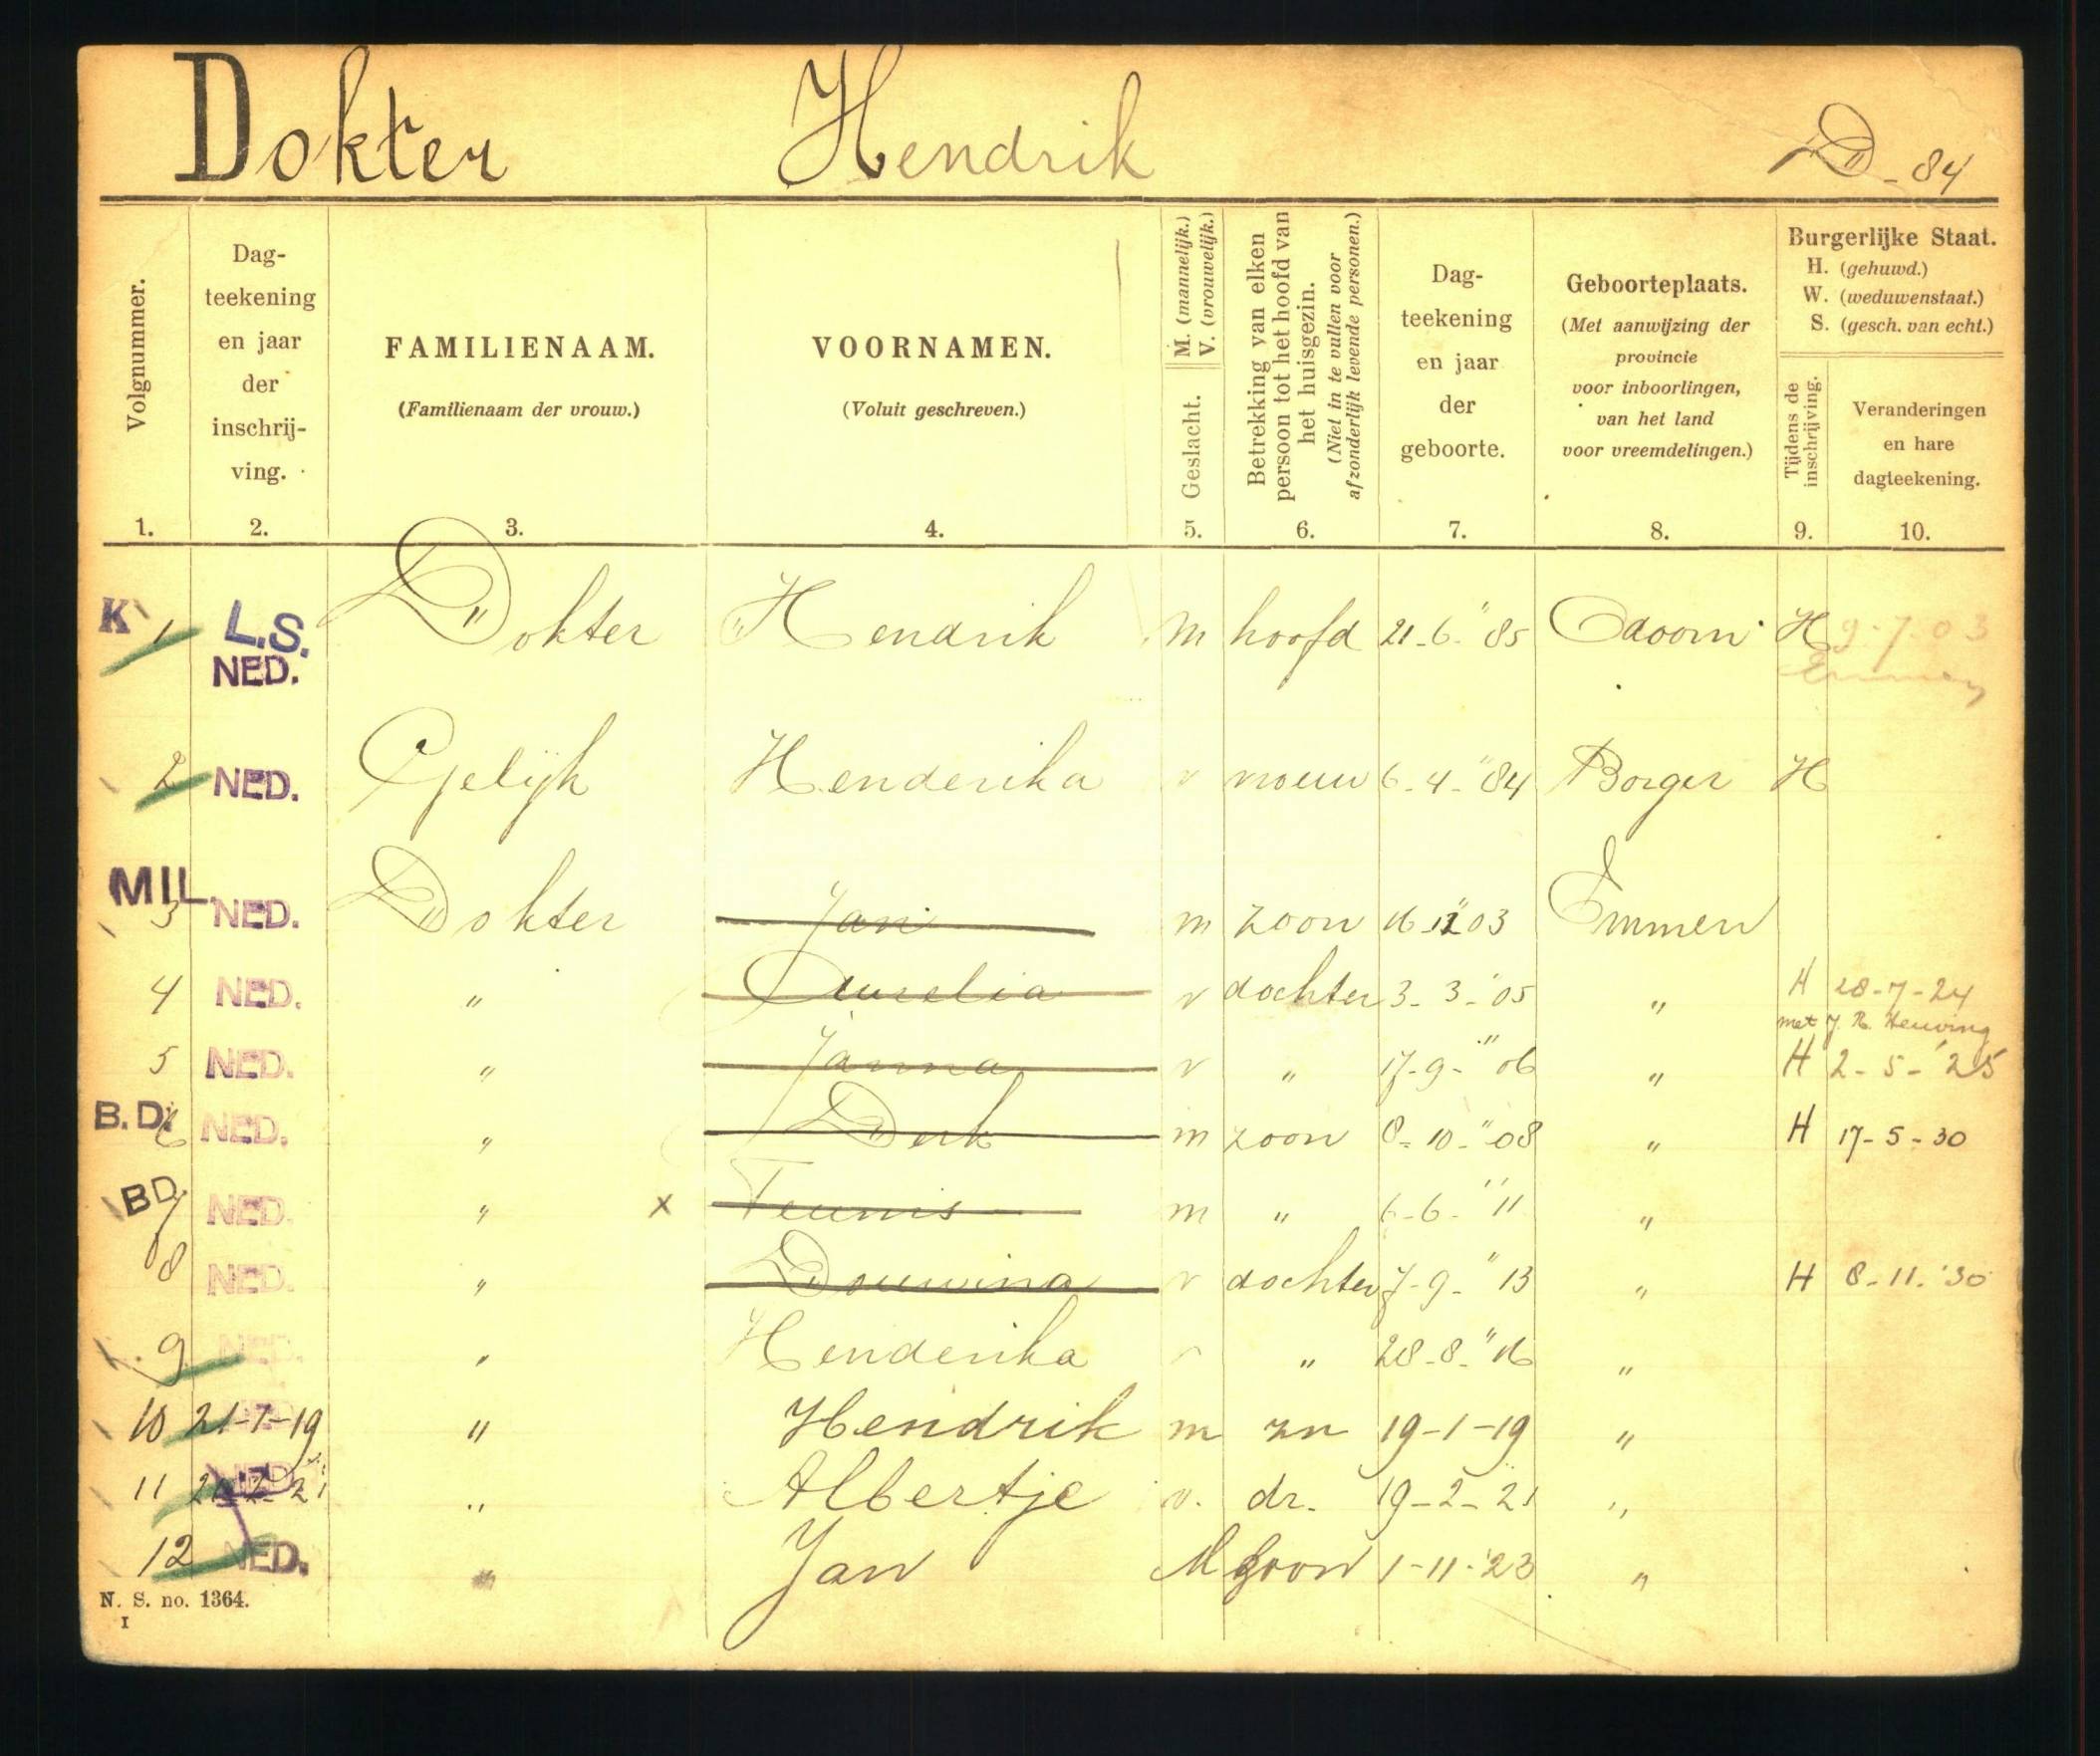 Dokter Hendrik D-84
Volgnummer.
1.
Dag-
teekening
en jaar
der
inschrij-
ving.
2.
FAMILIENAAM.
(Familienaam der vrouw.)
3.
VOORNAMEN.
(Voluit geschreven.)
4.
M. (mannelijk.)
V. (vrouwelijk.)
Geslacht.
5.
Betrekking van elken
persoon tot het hoofd van
het huisgezin.
(Niet in te vullen voor
afzonderlijk levende personen.)
6.
Dag-
teekening
en jaar
der
geboorte.
7.
Geboorteplaats.
(Met aanwijzing der
provincie
voor inboorlingen,
van het land
voor vreemdelingen.)
8.
Burgerlijke Staat.
H. (gehuwd.)
W. (weduwenstaat.)
S. (gesch. van echt.)
Tijdens de
inschrijving.
9.
Veranderingen
en hare
dagteekening.
10.
K 1 L.S. NED. Dokter Hendrik m hoofd 21-6-"85 Odoorn H 9-7-03
Emmen
2 NED. Gelijk Henderika v vrouw 6-4-"84 Borger H
MIL. 3 NED. Dokter Jan m zoon 16-12"03 Emmen
4 NED. " Aurelia v dochter 3-3-"05 " H 28-7-24
met J. R. Heuving
5 NED. " Janna v " 17-9-"06 " H 2-5-'25
B.D. 6 NED. " Derk m zoon 8-10-"08 " H 17-5-30
BD. 7 NED. " x Teunis m " 6-6-"11 "
8 NED. " Douwina v dochter 7-9-"13 " H 8-11-'30
9 NED. " Henderika v " 28-8-"16 "
10 21-1-19 " Hendrik m zn 19-1-19 "
11 NED. " Albertje v. dr. 19-2-21 "
12 NED. " Jan M zoon 1-11-'23 "
N. S. no. 1364.
I